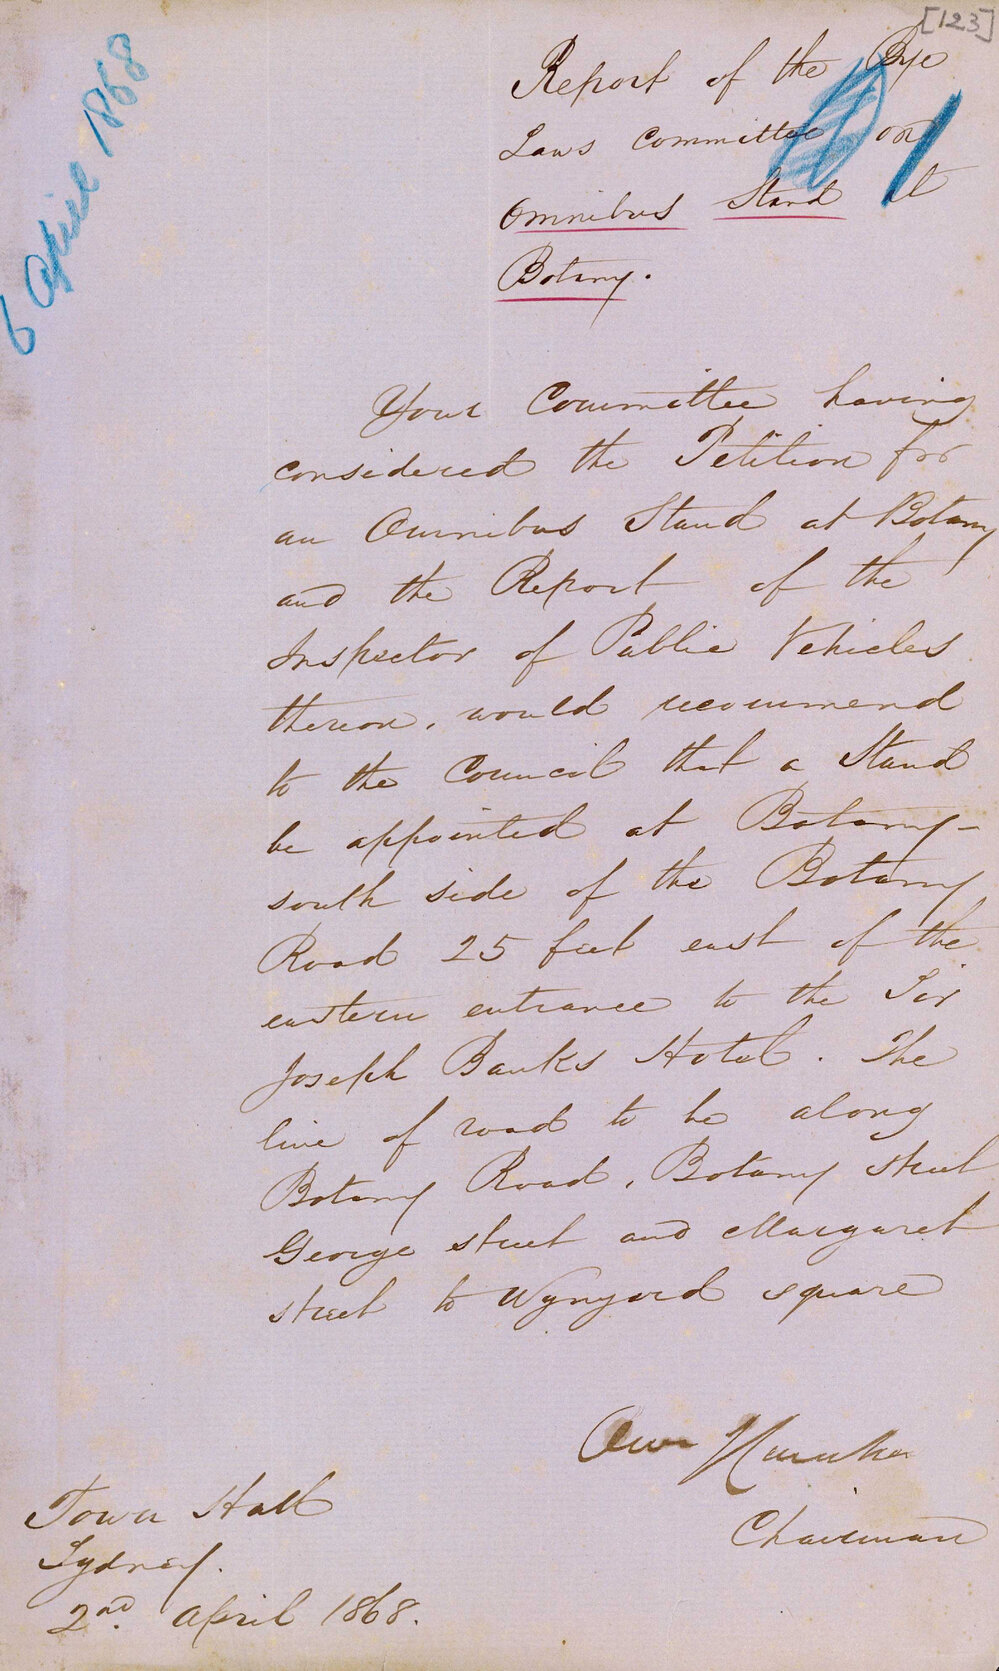 [123]
6 April 1868
Report of the Bye
Laws Committee on
Omnibus Stand at
Botany.
1
Your Committee having
considered the Petition for
an Omnibus Stand at Botany
and the Report of the
Inspector of Public Vehicles
thereon, would recommend
to the Council that a Stand
be appointed at Botany-
south side of the Botany
Road 25 feet east of the
eastern entrance to the Sir
Joseph Banks Hotel. The
line of road to be along
Botany Road, Botany street
George street and Margaret
street to Wynyard square
Chairman
Town Hall
Sydney.
2nd April 1868.